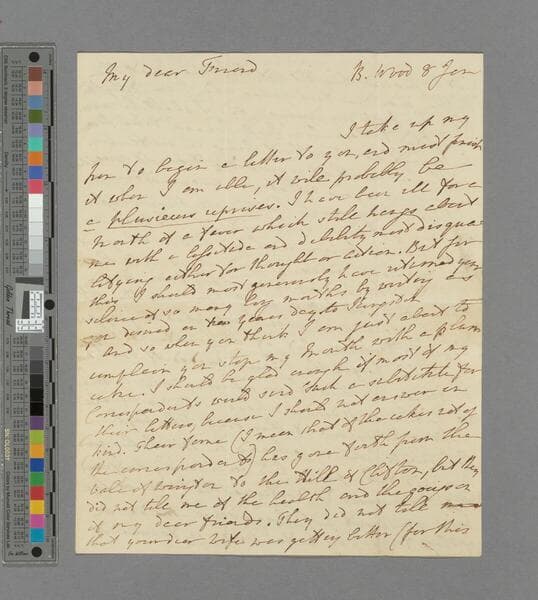 My dear Friend B. Wood 8 Jan
I take up my
pen to begin a letter to you, and must finish
it when I am able, it will probably be
a plusieurs reprises. I have been ill for a
month of a fever which still hangs about
me with a lassitude and debility most disqua
lifying either for thought or action. But for
this I should most generously have returned your
silence of so many long months by writing as
you desired on new years day to
And so when you think I am just about to
complain you stop my mouth with a plum
cake. I should be glad enough if most of my
Correspondents would send such a substitute for
their letters, because I should not answer in
kind. Their fame (I mean that of the cakes not of
the correspondents) has gone forth from the
vale of to the Hill of Clifton, but they
did not tell me of the health and the goings on
of my dear friends. They did not tell me
that your dear Wife was getting better (for this